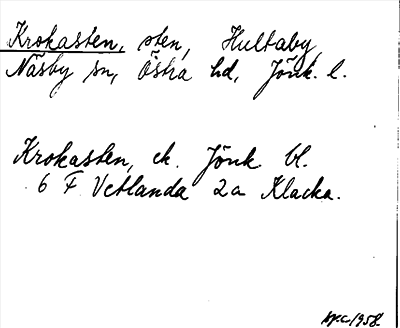 Krokasten, sten, Hultaby,
Näsby sn, Östra hd, Jönk. l.
Krokasten, ek. Jönk bl.
6 F Vetlanda 2a Klacka.
1958.